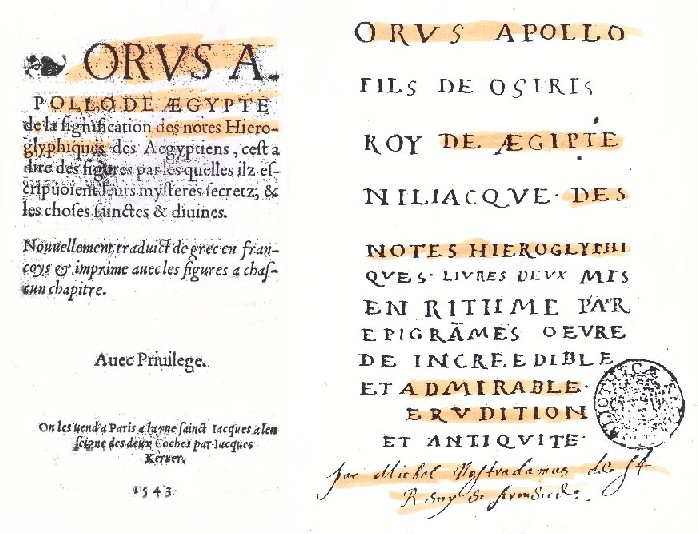 ORVS A.
POLLO DE ÆGYPTE
de la signification des notes Hiero-
glyphiques des Aegyptiens, cest a
dire des figures par les quelles ilz es-
cripuoient leurs mysteres secretz, &
les choses sainctes & diuines.
Nouuellement traduict de grec en fran-
coys & imprime auec les figures a chas-
cun chapitre.
Auec Priuilege.
On les uend a Paris a la rue sainct Iacques a len
seigne des deux Coches par Iacques
Keruer.
1543.
ORVS APOLLO
FILS DE OSIRIS
ROY DE ÆGIPTE
NILIACQVE· DES
NOTES HIEROGLYPHI
QVES· LIVRES DEVX MIS
EN RITHME PAR
EPIGRĀMES OEVRE
DE INCREEDIBLE
ET ADMIRABLE
ERVDITION
ET ANTIQVITE·
par Michel Nostradamus de St
Remy